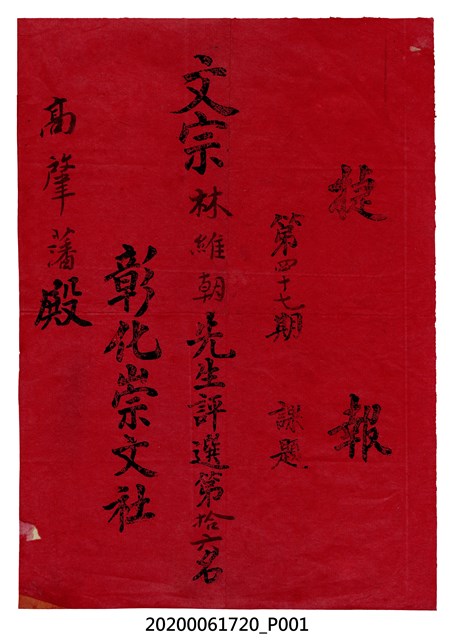 捷報
第四十七期 課題
文宗林維朝先生評選第拾六名
彰化崇文社
高肇藩殿
20200061720_P001